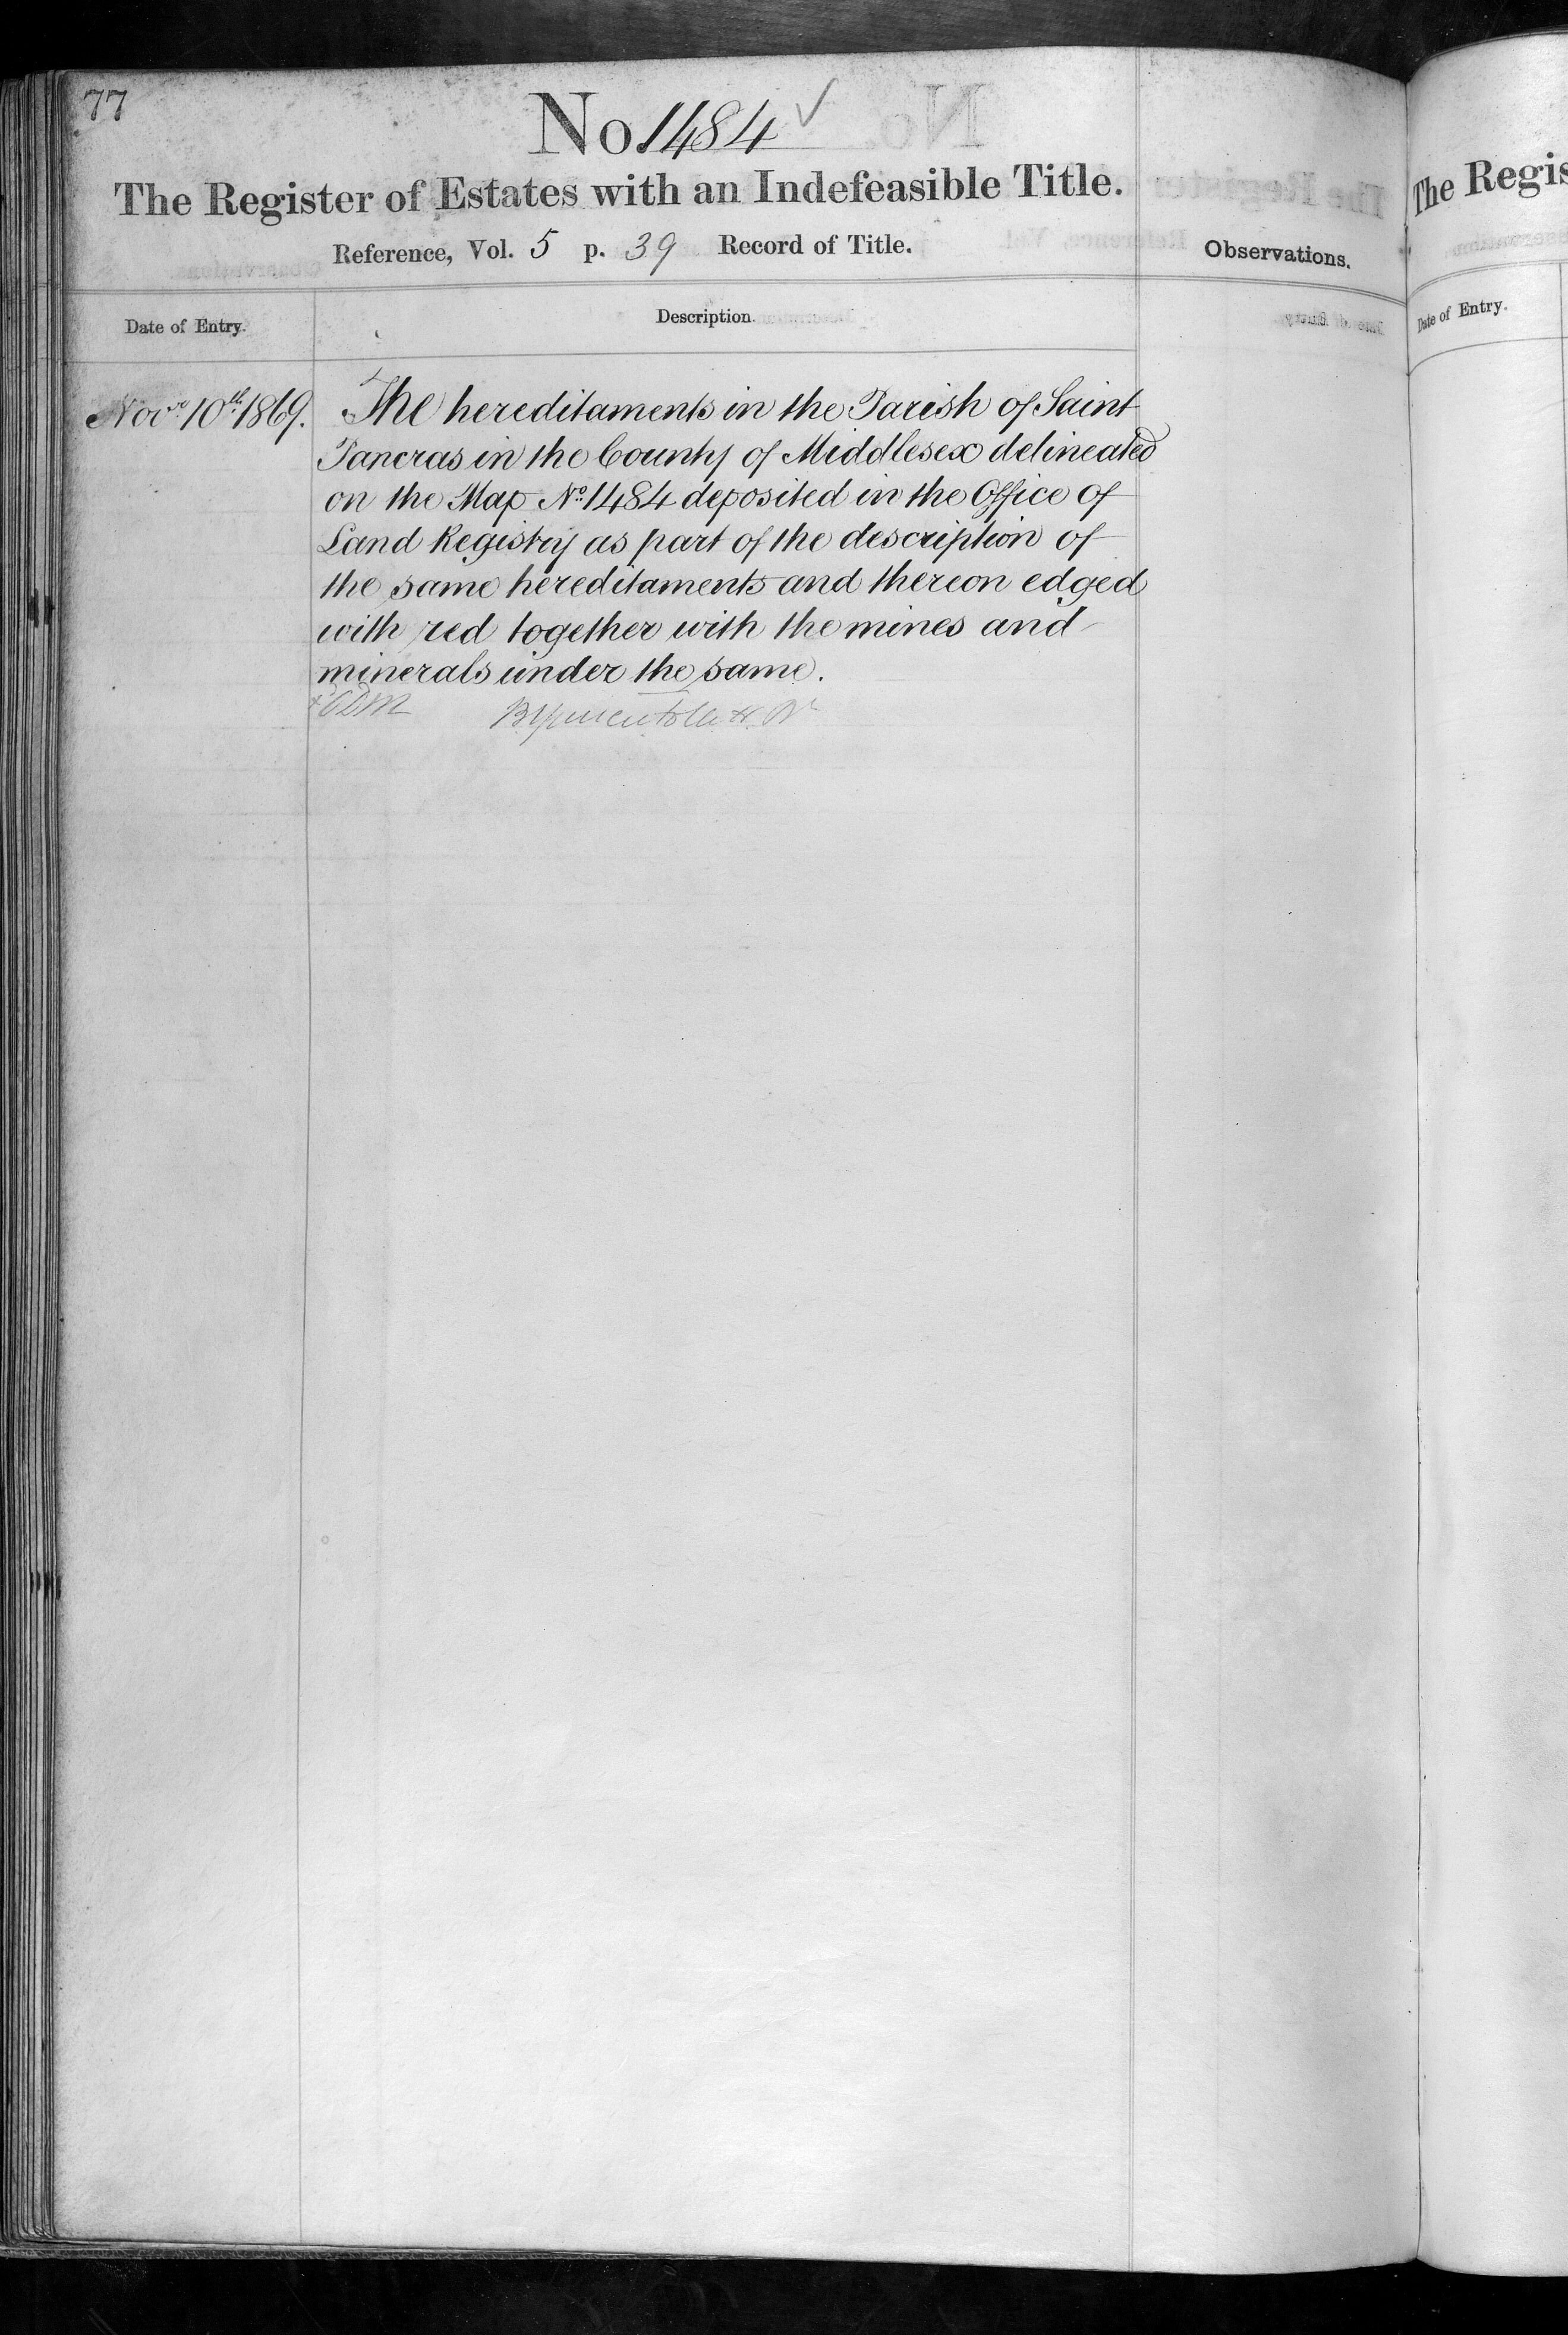 77
No. 1484 ✓
The Register of Estates with an Indefeasible Title.
Reference, Vol. 5 p. 39 Record of Title.
Observations.
Date of Entry.
Description.
Novr. 10th. 1869.
The hereditaments in the Parish of Saint
Pancras in the County of Middlesex delineated
on the Map No. 1484 deposited in the Office of
Land Registry as part of the description of
the same hereditaments and thereon edged
with red together with the mines and
minerals under the same.
The Regis
Date of Entry.